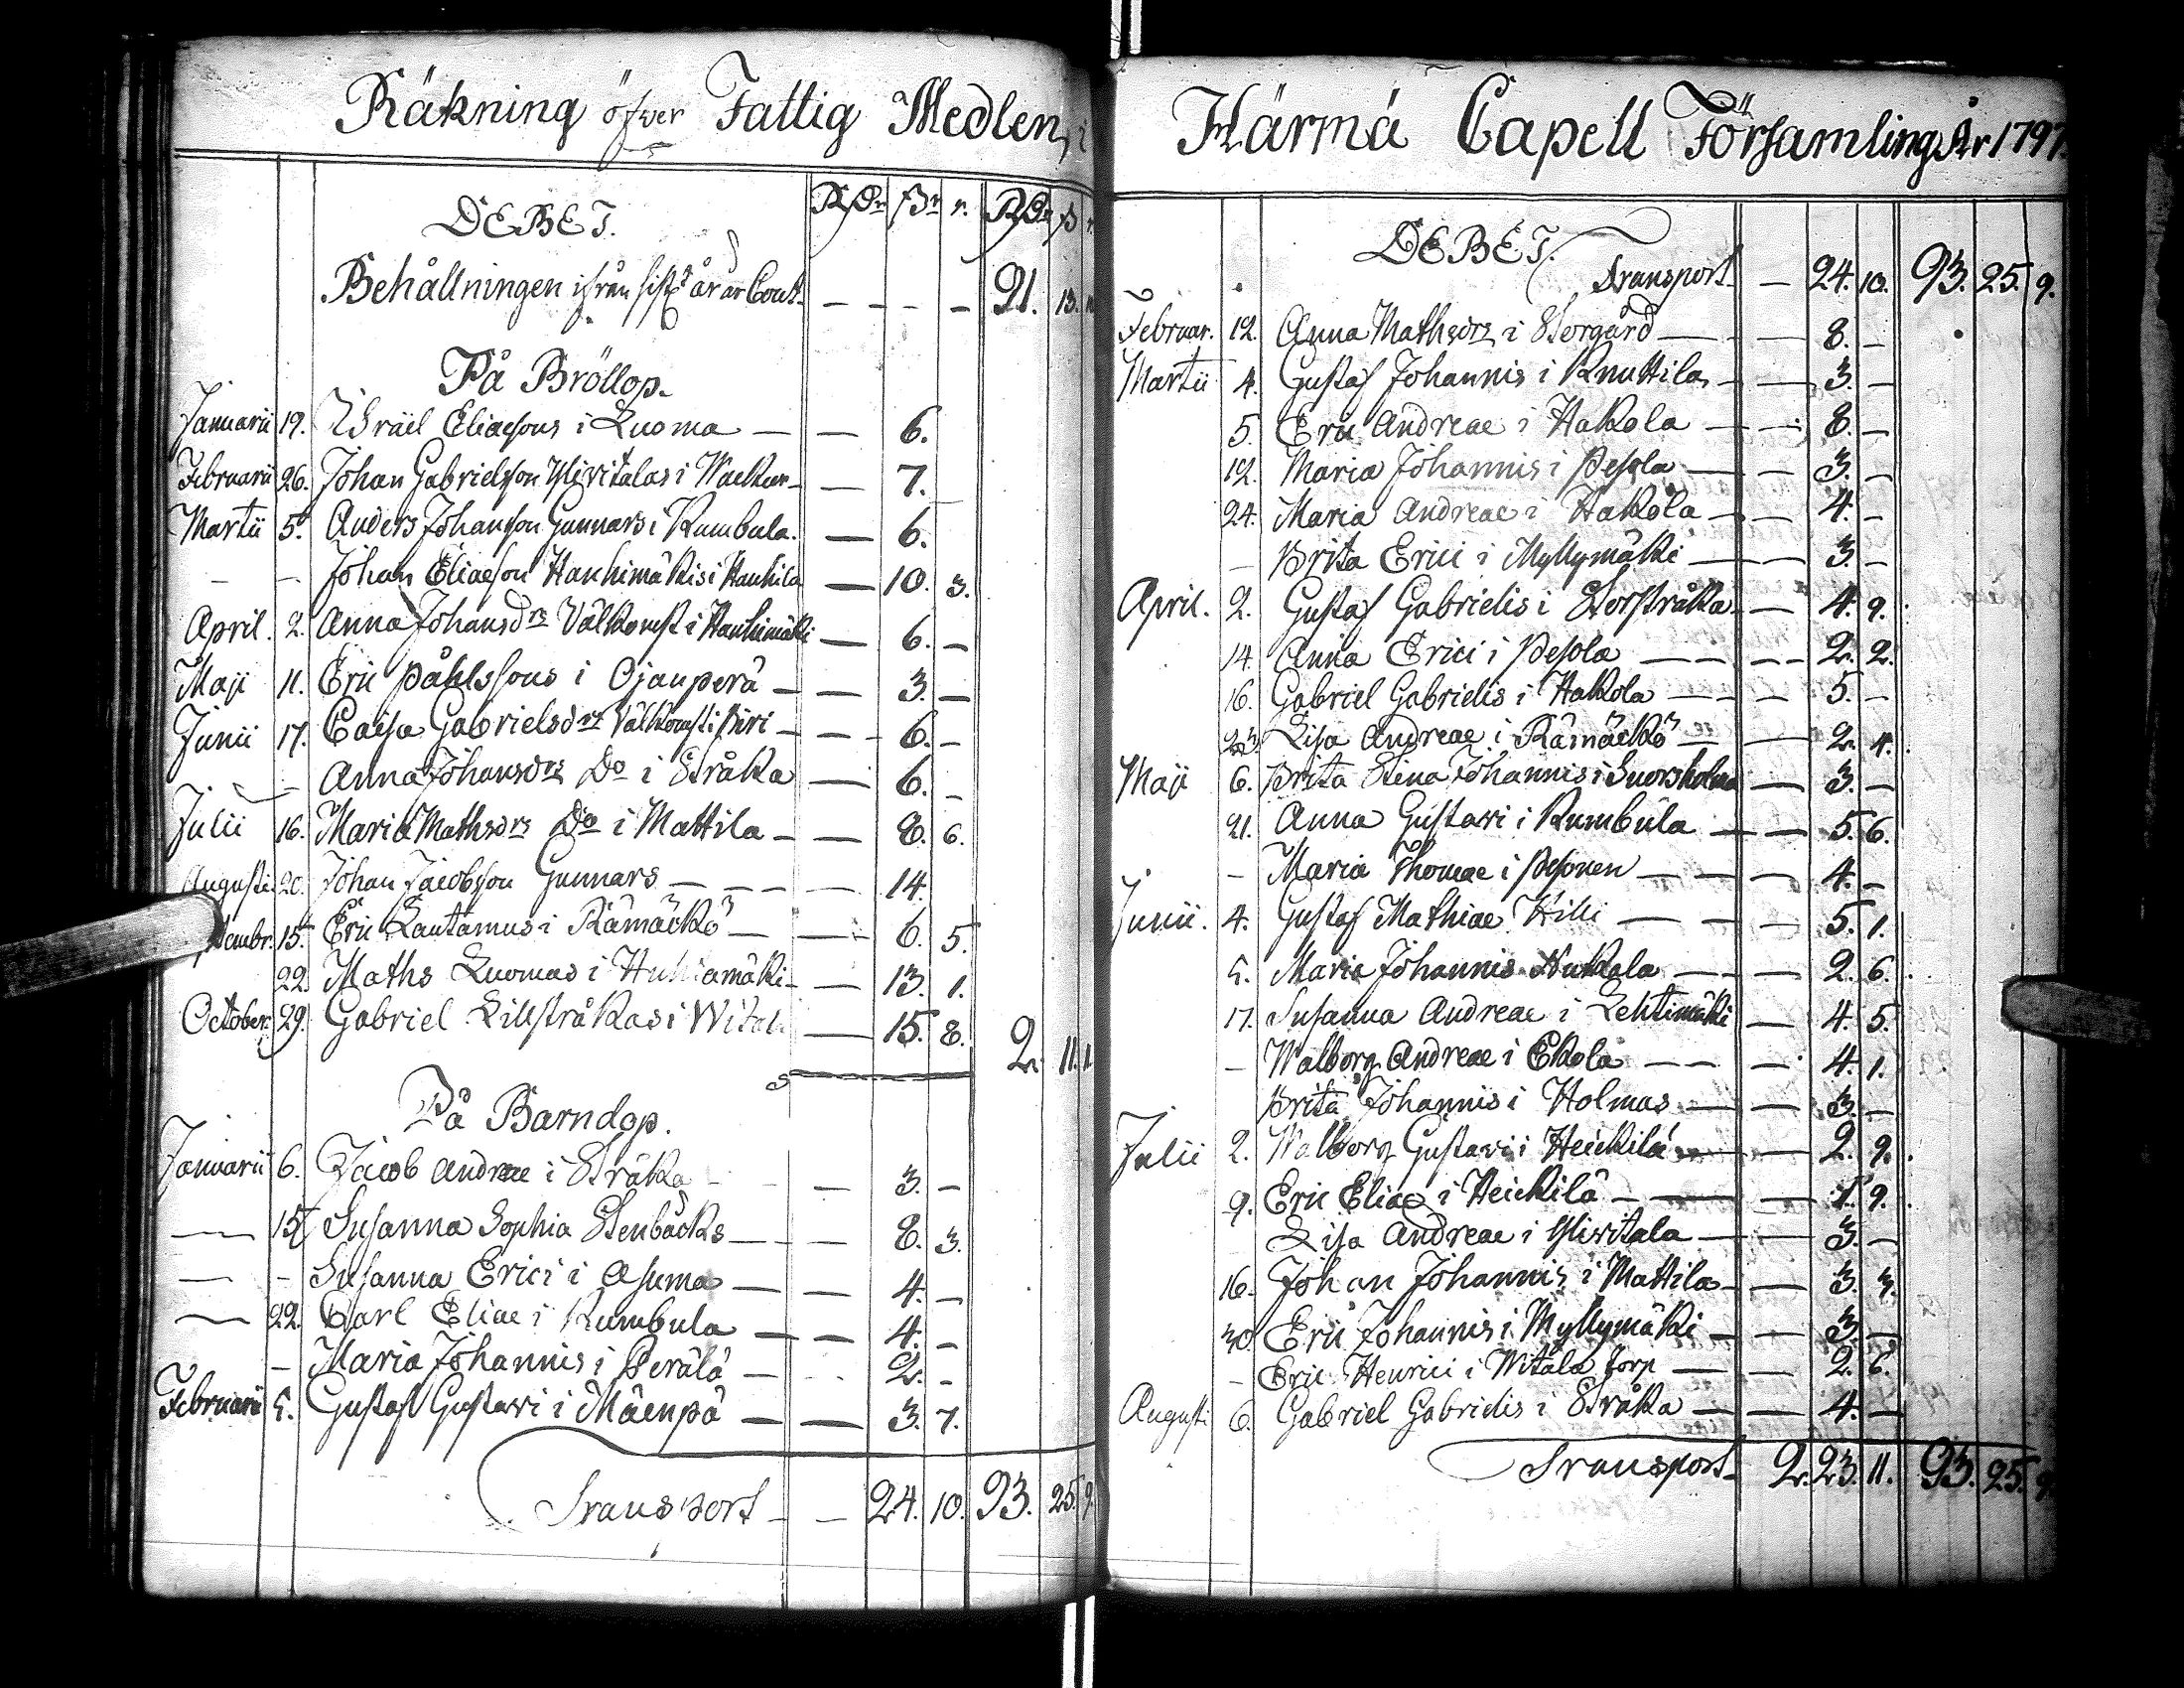 Räkning öfwer Fattig Medlen i
DEBET. RDr ßr r. RDr ß r.
Behållningen ifrån sist år är Cont. — — — 91. 13.
På Bröllop.
Januarii 19. Isräil Eliaesons i Luoma — — 6.
Februarii 26. Johan Gabrielsson Yliwitalas i — 7. —
Martii 5. Anders Johanson Gunnars i Rumbula. — 6.
— — Johan Eliaeson Hanhimäkis i Hanhila — 10. 3.
April. 2. Anna Johansdrs Välkomst i Hanhimäki — 6. —
Maji 11. Eric Påhlssons i Ojanperä — — 3. —
Junii 17. Caisa Gabrielsdrs Välkomst i — — 6. —
— Anna Johansdrs Do i Stråka — 6. —
Julii 16. Maria Mathsdrs Do i Mattila — — 8. 6.
Augusti 20. Johan Jacobsson Gunnars — — — — 14.
tembr. 15. Eric Lautamus i Rämäckö — — 6. 5.
22. Maths Luomas i — — 13. 1.
October. 29. Gabriel Lillstråkas i Witala — 15. 8. 2. 11. 1
På Barndop.
Januarii 6. Jacob Andreae i Stråka — — 3. —
— 15. Susanna Sophia Stenbäcks — — 8. 3.
— — Susanna Erici i Asuma — — 4. —
— 22. Carl Eliae i Rumbula — — 4. —
— Maria Johannis i Perälä — 2. —
Februarii 5. Gustaf Gustawi i Mäenpä — — 3. 7.
Transport — — 24. 10. 93. 25. 9.
Härmä Capell Församling År 1797.
DEBET.
Transport — 24. 10. 93. 25. 9.
Februar. 12. Anna Mathsdrs i Storgård — — 8. —
Martii 4. Gustaf Johannis i Knuttila — — 3. —
5. Eric Andreae i Hakola — — 8. —
12. Maria Johannis i Pesola — — 3. —
24. Maria Andreae i Hakola — — 4. —
— Brita Erici i Myllymäki — — 3. —
April. 2. Gustaf Gabrielis i Storstråka — 4. 9.
14. Anna Erici i Pesola — — — 2. 2.
16. Gabriel Gabrielis i Hakola — — 5. —
23. Lisa Andreae i Rämäckö — — 2. 4.
Maji 6. Brita Stina Johannis i — 3. —
21. Anna Gustawi i Rumbula — — 5. 6.
— Maria Thomae i Pesonen — — 4. —
Junii. 4. Gustaf Mathiae Killi — — — 5. 1.
5. Maria Johannis Hakola — — 2. 6.
17. Susanna Andreae i Lehtimäki — 4. 5.
— Walborg Andreae i Ekola — — 4. 1.
Brita Johannis i Holmas — — 3. —
Julii 2. Walborg Gustawi i Heickilä — — 2. 9.
9. Eric Eliae i Heickilä — — — 1. 9.
Lisa Andreae i Yliwitala — — 3. —
16. Johan Johannis i Mattila — — 3. 3.
30. Eric Johannis i Myllymäki — — 3. —
— Eric Henrici i Witala Torp — — 2. 6.
Augusti 6. Gabriel Gabrielis i Stråka — — 4. —
Transport 2. 23. 11. 93. 25. 9.